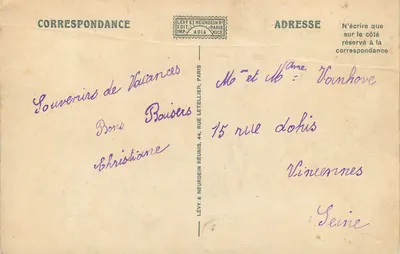 CORRESPONDANCE
LÉVY ET NEURDEIN RÉUNIS
4014
PARIS
ADRESSE
N'écrire que
sur le côté
réservé à la
correspondance
Souvenirs de Vacances
Bons Baisers
Christiane
LÉVY & NEURDEIN RÉUNIS, 44, RUE LETELLIER, PARIS
Mr et Mme Vanhove
15 rue dohis
Vincennes
Seine